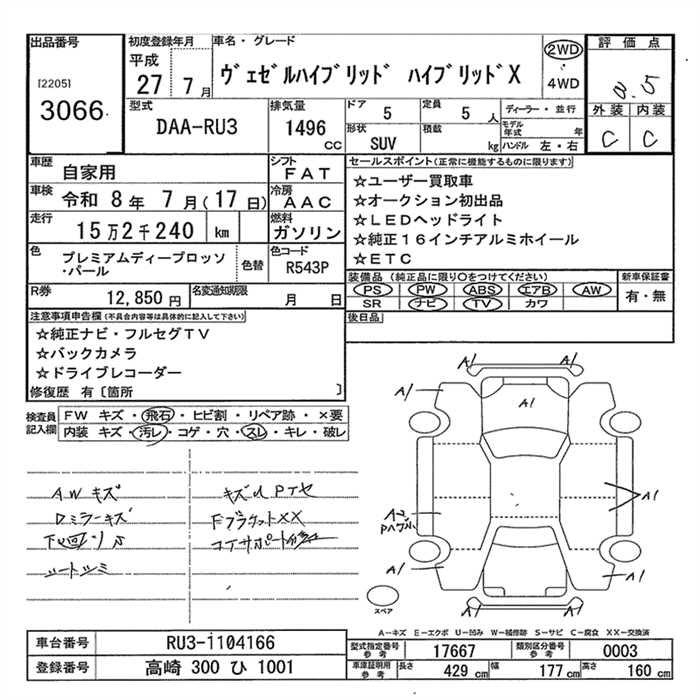 出品番号
[2205]
3066
初度登録年月
平成
27 7月
車名・グレード
ヴェゼルハイブリッド ハイブリッドX
2WD
・
4WD
評価点
外装 内装
C C
型式
DAA-RU3
排気量
1496
CC
ドア
5
定員
5人
形状
SUV
積載
kg
ディーラー・並行
モデル年式 年
ハンドル 左・右
車歴
自家用
シフト
FAT
車検
令和 8年 7月(17日)
冷房
AAC
走行
15万2千240 km
燃料
ガソリン
色
プレミアムディープロッソ
・パール
色替
色コード
R543P
R券
12,850円
名変通知期限
月 日
セールスポイント(正常に機能するものに限ります)
☆ユーザー買取車
☆オークション初出品
☆LEDヘッドライト
☆純正16インチアルミホイール
☆ETC
装備品 (純正品に限り○をつけてください)
PS PW ABS エアB AW
SR ナビ TV カワ
新車保証書
有・無
後日品
注意事項申告欄(不具合内容等は具体的に記入して下さい)
☆純正ナビ・フルセグTV
☆バックカメラ
☆ドライブレコーダー
修復歴 有〔箇所 〕
検査員
記入欄
FW キズ・飛石・ヒビ割・リペア跡・×要
内装 キズ・汚レ・コゲ・穴・スレ・キレ・破レ
AWキズ
Dミラーキズ
シートシミ
A1
A1
A1
A1
A1
A1
A2
A1
A1
A1
スペア
A-キズ E-エクボ U-凹み W-補修跡 S-サビ C-腐食 XX-交換済
車台番号
RU3-1104166
登録番号
高崎 300 ひ 1001
型式指定番号
参考
17667
類別区分番号
参考
0003
車庫証明用
参考
長さ
429 cm
幅
177 cm
高さ
160 cm